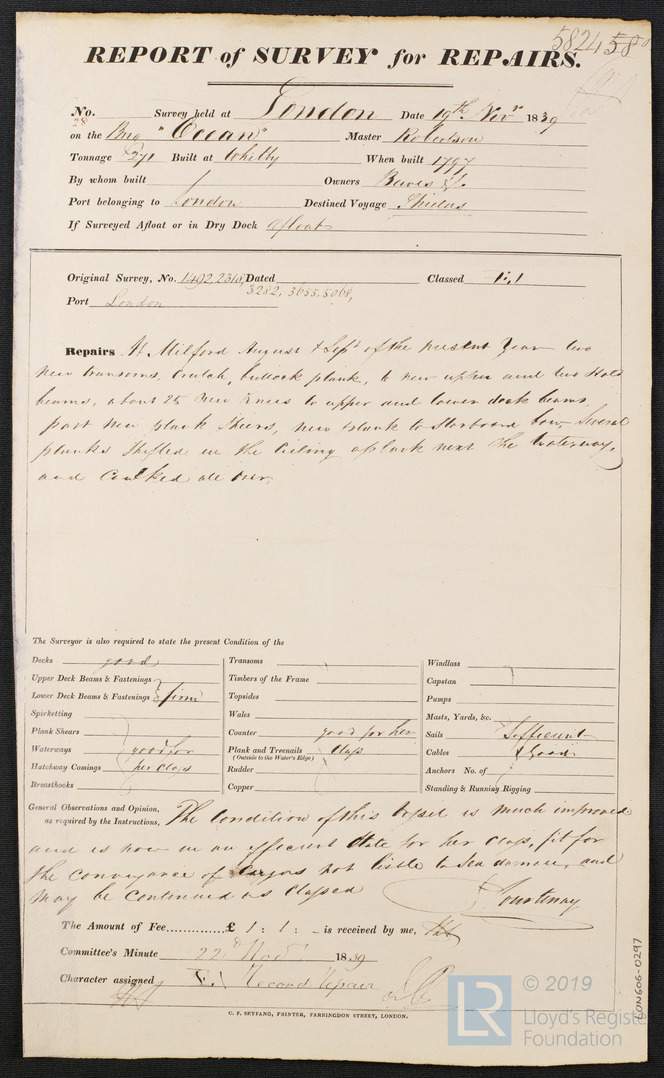 5824 58
REPORT of SURVEY for REPAIRS.
No. 28 Survey held at London Date 19th Novr 1839
on the Brig "Ocean" Master Robertson
Tonnage 271 Built at Whitby When built 1797
By whom built / Owners
Port belonging to London Destined Voyage Shields
If Surveyed Afloat or in Dry Dock Afloat
Original Survey, No. 1492, 2318, Dated Classed E.1
3282, 3655, 5068,
Port London
Repairs At Milford August & Sept of the present Year two
new transoms, Crutch, bullock plank, new upper and two Hold
beams, about 25 New Knees to upper and lower deck beams,
part new plank Sheers, new plank to Starboard bow, Several
planks Shifted in the Ceiling a plank next the Waterway,
and Caulked all over.
The Surveyor is also required to state the present Condition of the
Decks good
Upper Deck Beams & Fastenings
Lower Deck Beams & Fastenings firm
Spirketting
Plank Shears
Waterways good for
Hatchway Comings her class
Breasthooks
Transoms
Timbers of the Frame
Topsides
Wales
Counter good for her
Plank and Treenails Class
(Outside to the Water's Edge)
Rudder
Copper
Windlass
Capstan
Pumps
Masts, Yards, &c.
Sails Sufficient
Cables & Good
Anchors No. of
Standing & Running Rigging
General Observations and Opinion, as required by the Instructions, The Condition of this Vessel is much improved
and is now in an efficient State for her Class, fit for
the conveyance of Cargoes not liable to Sea damage, and
may be continued as Classed
Courtenay
The Amount of Fee............. £ 1 : 1 : - is received by me,
Committee's Minute 22d Novr 1839
Character assigned E.1 Record Repair
C. F. SEYFANG, PRINTER, FARRINGDON STREET, LONDON.
LON606-0297
LR
© 2019
Lloyd's Register
Foundation